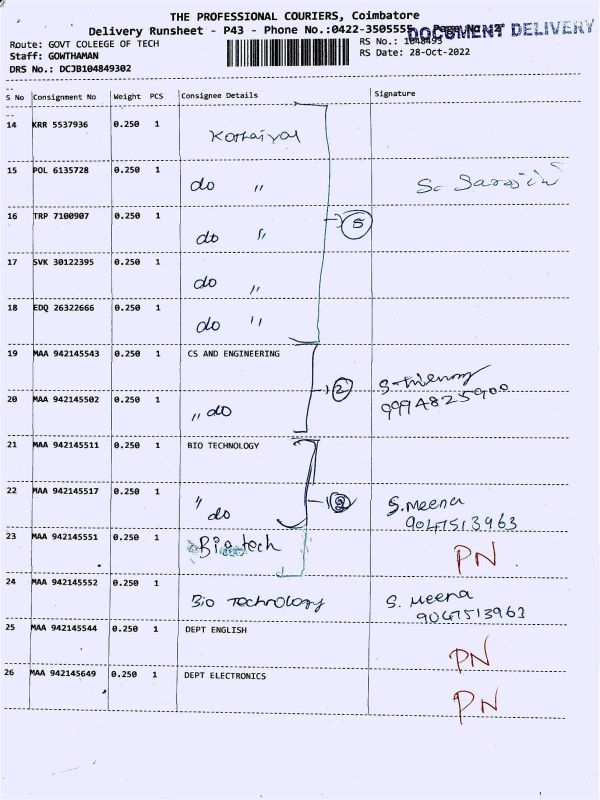 THE PROFESSIONAL COURIERS, Coimbatore
Delivery Runsheet - P43 - Phone No.:0422-3505555
DOCUMENT DELIVERY
Route: GOVT COLEEGE OF TECH
RS No.: 1048493
Staff: GOWTHAMAN
RS Date: 28-Oct-2022
DRS No.: DCJB104849302
S No Consignment No Weight PCS Consignee Details Signature
14 KRR 5537936 0.250 1
15 POL 6135728 0.250 1 do 〃
16 TRP 7100907 0.250 1 do 〃
5
17 SVK 30122395 0.250 1 do 〃
18 EDQ 26322666 0.250 1 do 〃
19 MAA 942145543 0.250 1 CS AND ENGINEERING
2
9994825900
20 MAA 942145502 0.250 1 〃 do
21 MAA 942145511 0.250 1 BIO TECHNOLOGY
22 MAA 942145517 0.250 1 〃 do S. Meena
9047513963
23 MAA 942145551 0.250 1 Biotech PN
24 MAA 942145552 0.250 1 Bio Technology S. Meena
9047513963
25 MAA 942145544 0.250 1 DEPT ENGLISH PN
26 MAA 942145649 0.250 1 DEPT ELECTRONICS PN